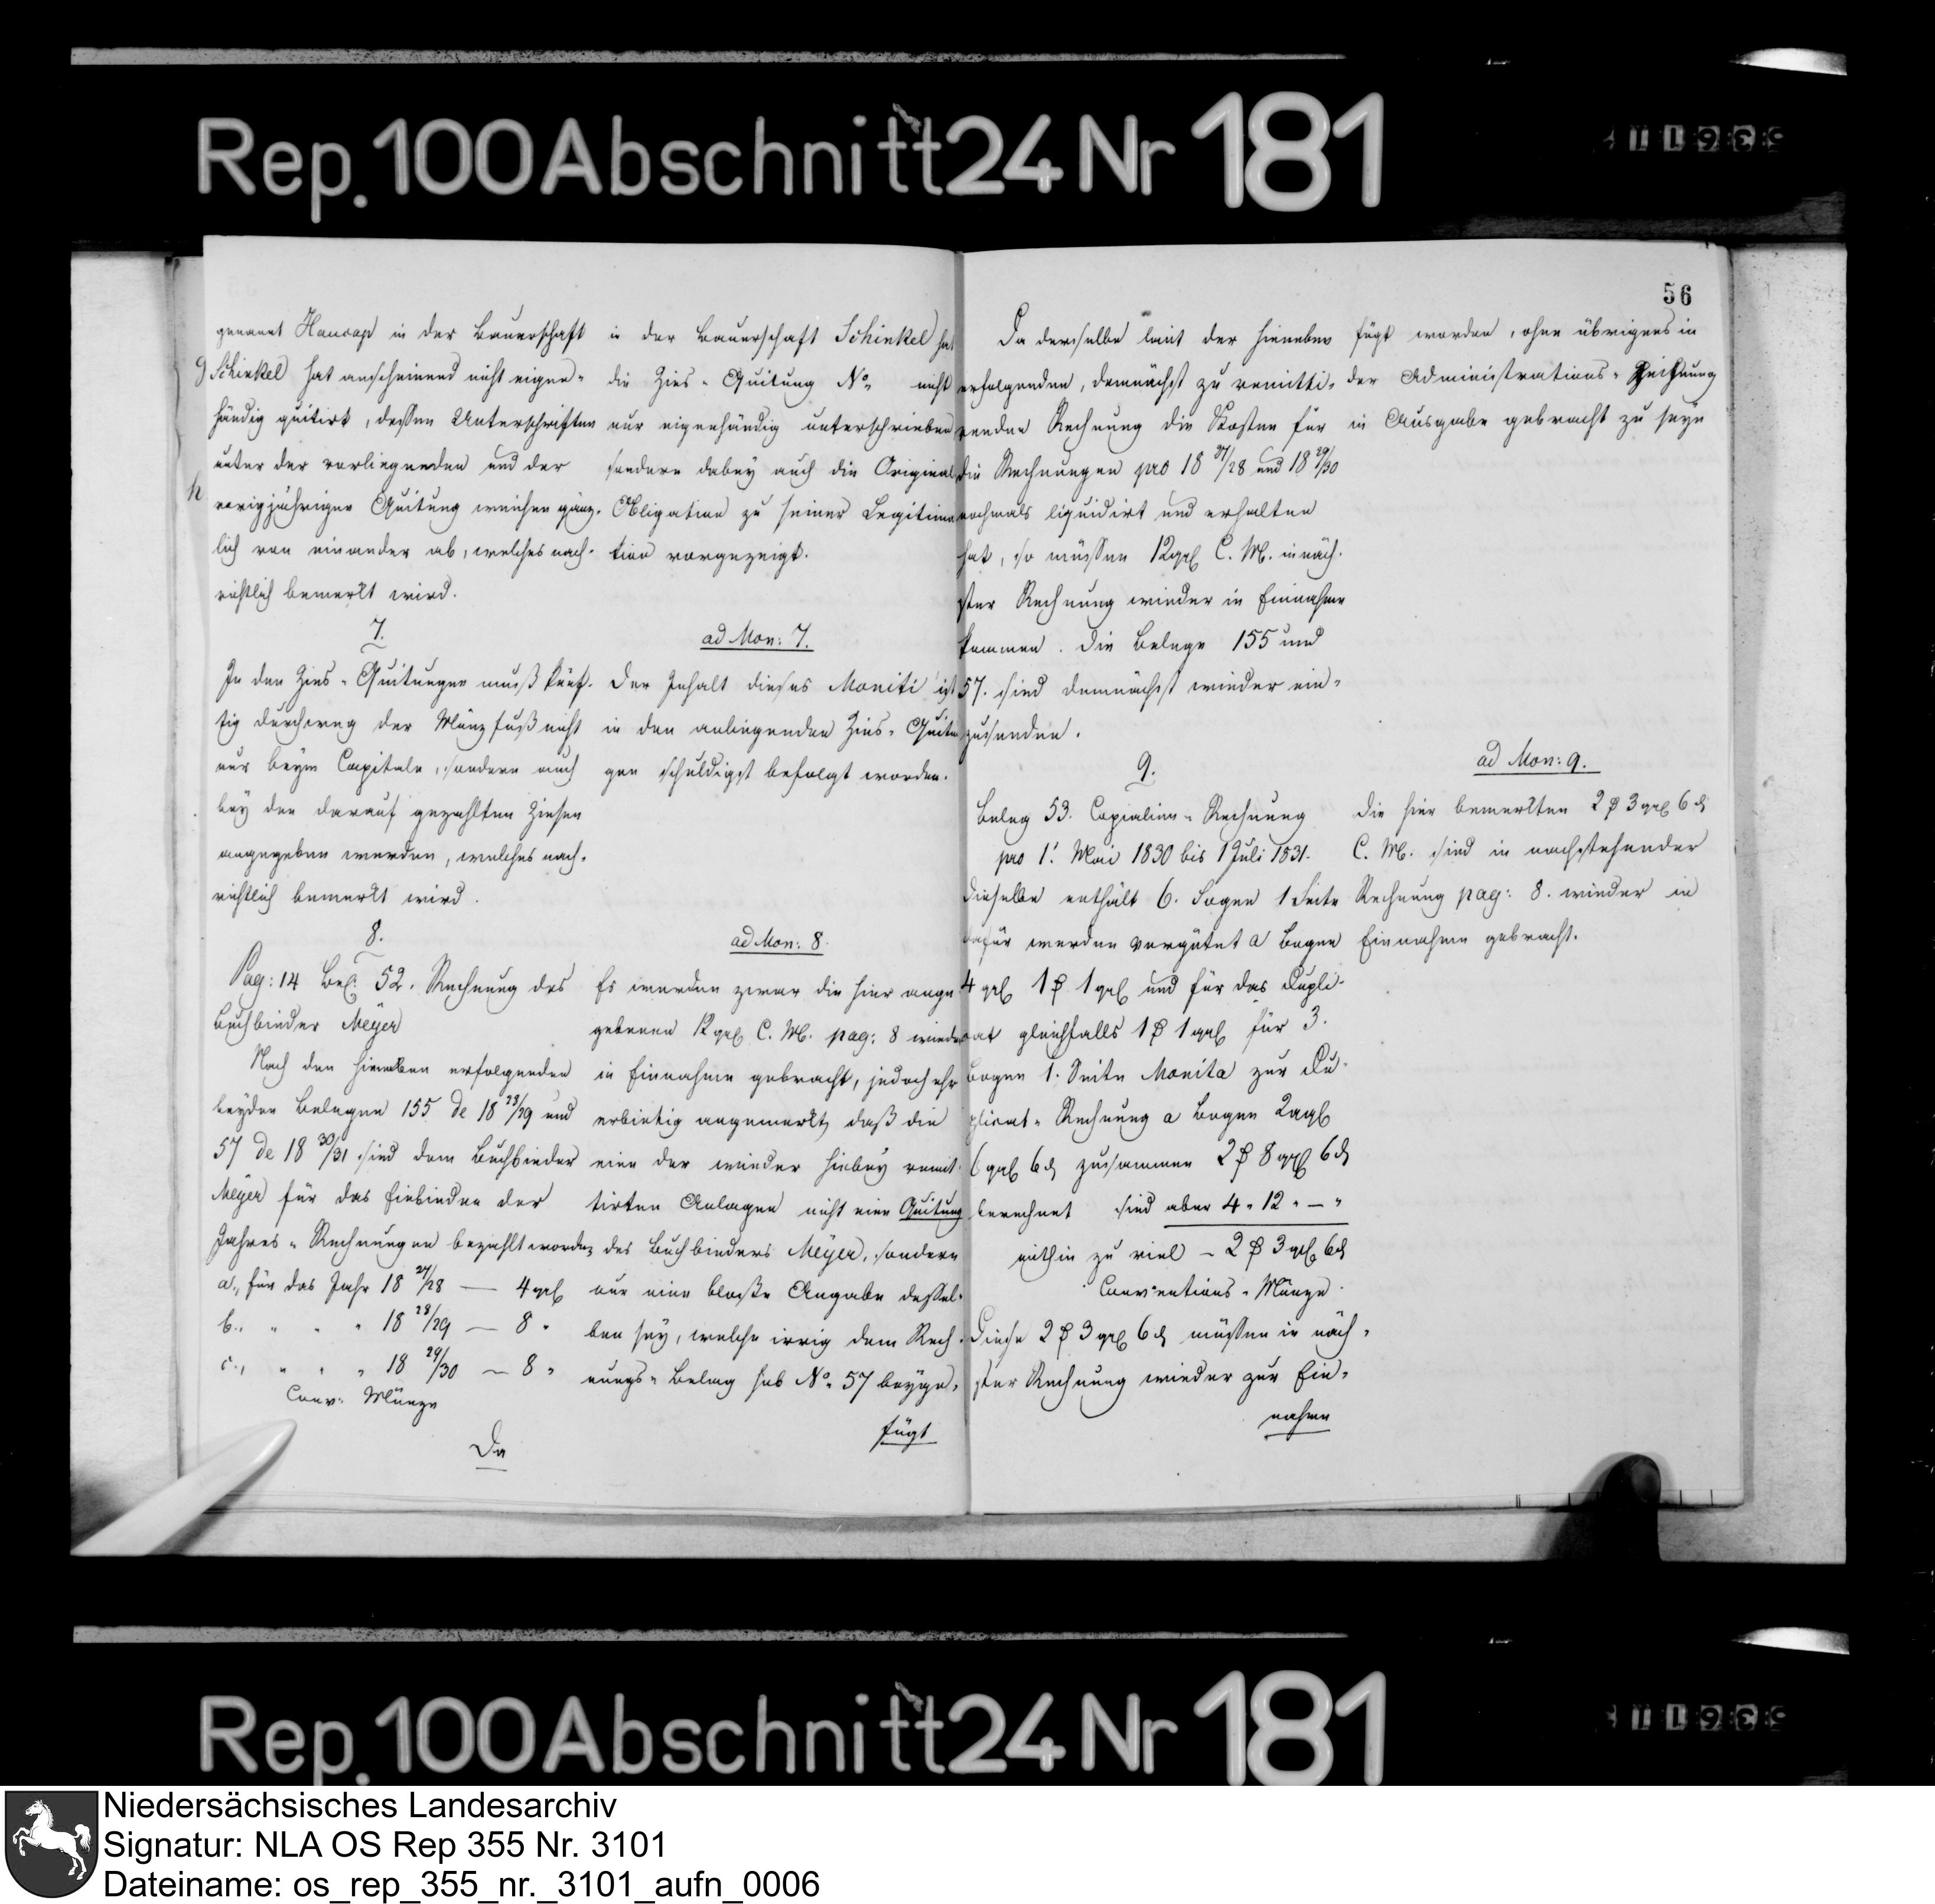 Rep. 100 Abschnitt 24 Nr 181
56
genannt Hancap in der Bauerschaft
g Schinkel hat anscheinend nicht eigen-
händig quitirt, dessen Unterschriften
unter der vorliegenden und der
h
vorigjährigen Quitung weichen gänz-
lich von einander ab, welches nach-
richtlich bemerkt wird.
7.
In den Zins-Quitungen muß künf-
tig durchweg der Münzfuß nicht
nur beym Capitale, sondern auch
bey den darauf gezahlten Zinsen
angegeben werden, welches nach-
richtlich bemerkt wird.
8.
Pag: 14 Bel: 52. Rechnung des
Buchbinder Meyer
Nach den hieneben erfolgenden
beyden Belegen 155 de 18 28/29 und
57 de 18 30/31 sind dem Buchbinder
Meyer für das Einbinden der
Jahres-Rechnungen bezahlt worden
a., für das Jahr 18 27/28 — 4 ggl
b., " " " 18 28/29 — 8 "
c., " " " 18 29/30 — 8 "
Conv: Münze
Da
in der Bauerschaft Schinkel hat
die Zins-Quitung No. nicht
nur eigenhändig unterschrieben
sondern dabey auch die Original
Obligation zu seiner Legitima
tion vorgezeigt.
ad Mon: 7.
Der Inhalt dieses Moniti ist
in den anliegenden Zins-Quitun
gen schuldigst befolgt worden.
ad Mon: 8.
Es werden zwar die hier ange
gebenen 12 ggl C. M. pag: 8 wieder
in Einnahme gebracht, jedoch ehr
erbietig angemerkt, daß die
eine der wieder hiebey remit-
tirten Anlagen nicht eine Quitung
des Buchbinders Meyer, sondern
nur eine bloße Angabe dessel-
ben sey, welche irrig dem Rech-
nungs-Beleg sub No. 57 beyge-
fügt
Da derselbe laut der hieneben
erfolgenden, demnächst zu remitti-
renden Rechnung die Kosten für
die Rechnungen pro 18 27/28 und 18 29/30
nochmals liquidirt und erhalten
hat, so müssen 12 ggl C. M. in näch-
ster Rechnung wieder in Einnahme
kommen. Die Belege 155 und
57. sind demnächst wieder ein-
zusenden.
9.
Beleg 53. Copialien-Rechnung
pro 1. Mai 1830 bis 1 Juli 1831.
Dieselbe enthält 6. Bogen 1 Seite
dafür werden vergütet a Bogen
4 ggl 1 ₰ 1 ggl und für das Dupli-
cat gleichfalls 1 ₰ 1 ggl für 3.
Bogen 1. Seite Monita zur Du-
plicat-Rechnung a Bogen 2 ggl
6 ggl 6 d zusammen 2 ₰ 8 ggl 6 d
berechnet sind aber 4 " 12 " — "
mithin zu viel — 2 ₰ 3 ggl 6 d
Conventions-Münze.
Diese 2 ₰ 3 ggl 6 d müssen in näch-
ster Rechnung wieder zur Ein-
nahme
fügt worden, ohne übrigens in
der Administrations-Rechnung
in Ausgabe gebracht zu seyn
ad Mon: 9.
Die hier bemerkten 2 ₰ 3 ggl 6 d
C. M. sind in nachstehender
Rechnung pag: 8. wieder in
Einnahme gebracht.
Rep. 100 Abschnitt 24 Nr 181
Niedersächsisches Landesarchiv
Signatur: NLA OS Rep 355 Nr. 3101
Dateiname: os_rep_355_nr._3101_aufn_0006